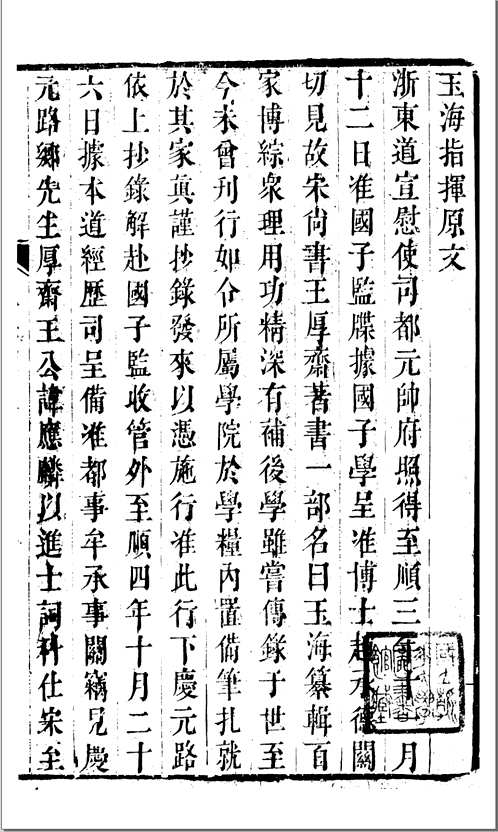 玉海指揮原文
浙東道宣慰使司都元帥府照得至順三年十月
十二日准國子監牒據國子學呈准博士趙承德關
切見故宋尚書王厚齋著書一部名曰玉海纂輯百
家博綜衆理用功精深有補後學雖嘗傳錄于世至
今未曾刊行如令所屬學院於學糧內置備筆扎就
於其家眞謹抄錄發來以憑施行准此行下慶元路
依上抄錄解赴國子監收管外至順四年十月二十
六日據本道經歷司呈備准都事牟承事關竊見慶
元路鄉先生厚齋王公諱應麟以進士詞科仕宋至